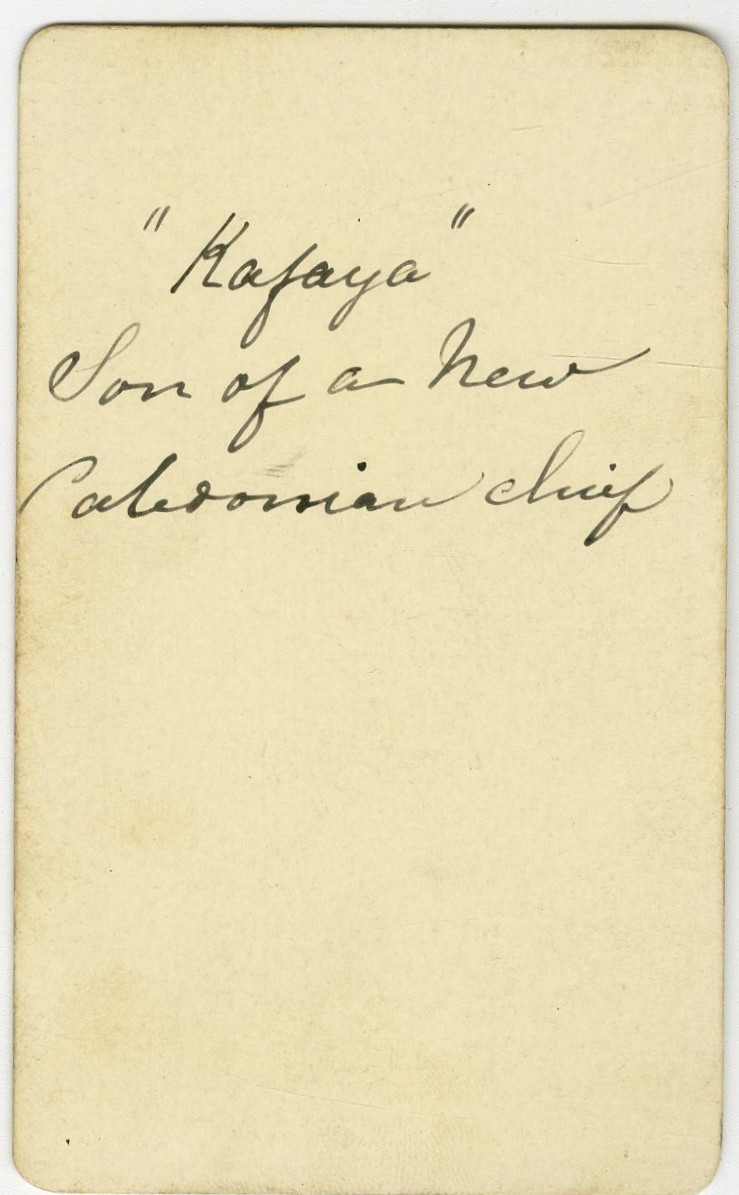 "Kafaya"
Son of a New
Caledonian chief